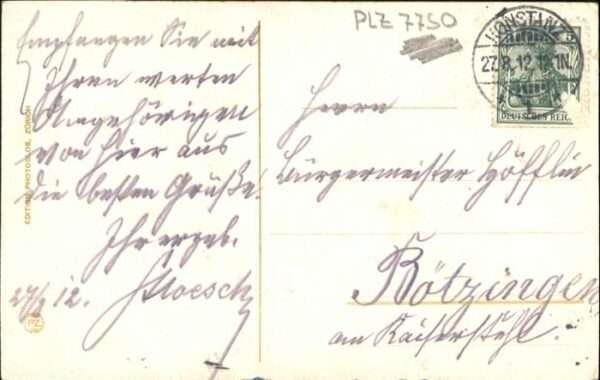 Empfangen Sie mit
Ihren werten
Angehörigen
von hier aus
die besten Grüße!
Ihr ergeb.
27/8 12.
EDITION PHOTOGLOB, ZÜRICH
PZ
PLZ 7750
KONSTANZ
27.8.12.
DEUTSCHES REICH
Herrn
Bürgermeister Höfflin
Bötzingen
am Kaiserstuhl.